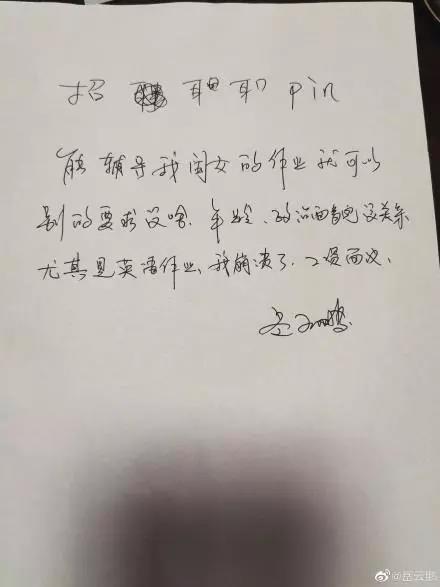 招 pin
能辅导我闺女的作业就可以
别的要求没啥.年龄.政治面貌没关系
尤其是英语作业,我崩溃了.工资面议.
岳云鹏
@岳云鹏